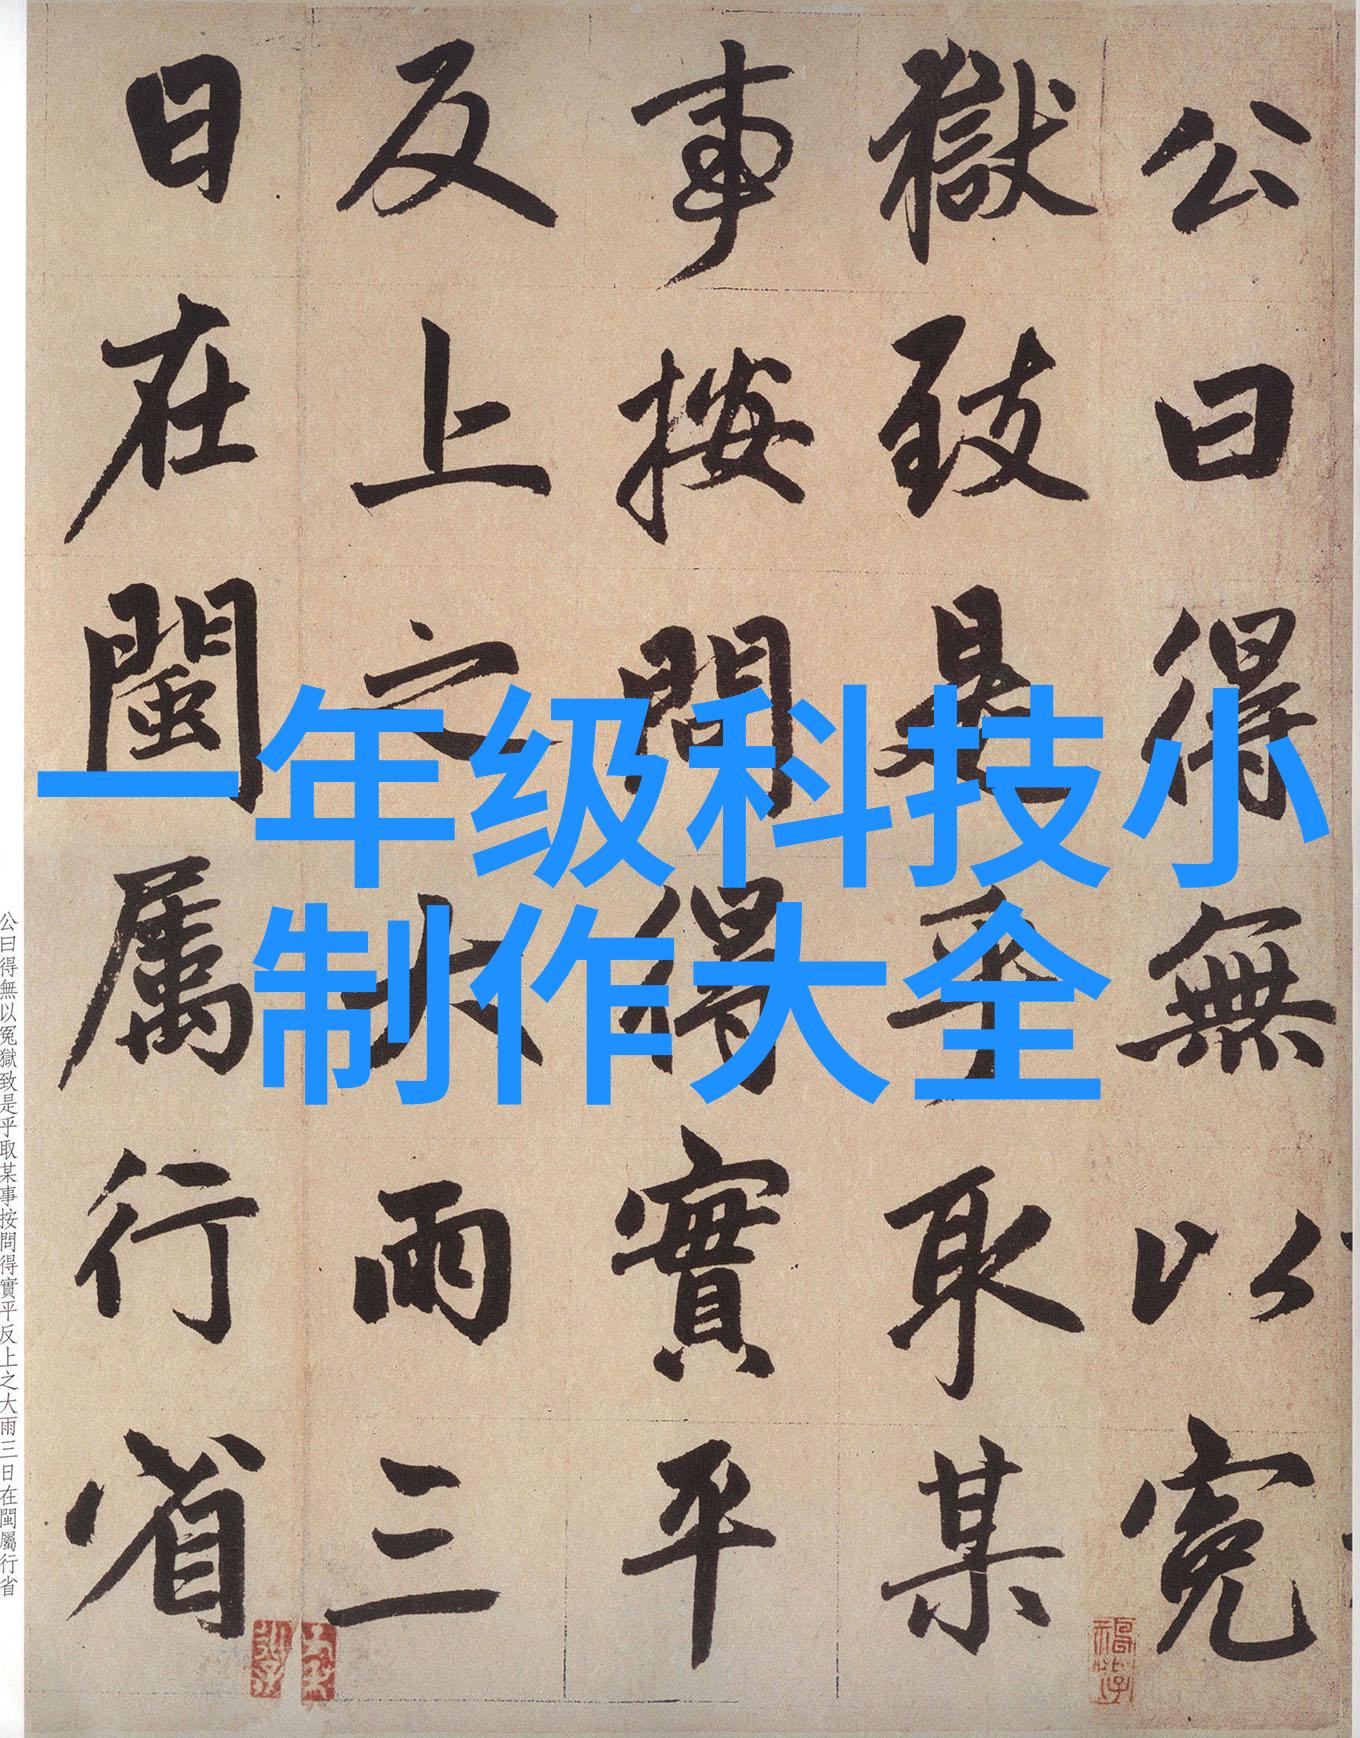 公曰得無以寃
獄致是乎取某
事按問得實平
反上之大雨三
日在閩屬行省
一年级科技小
制作大全
公曰得無以冤獄致是乎取某事按問得實平反上之大雨三日在閩屬行省